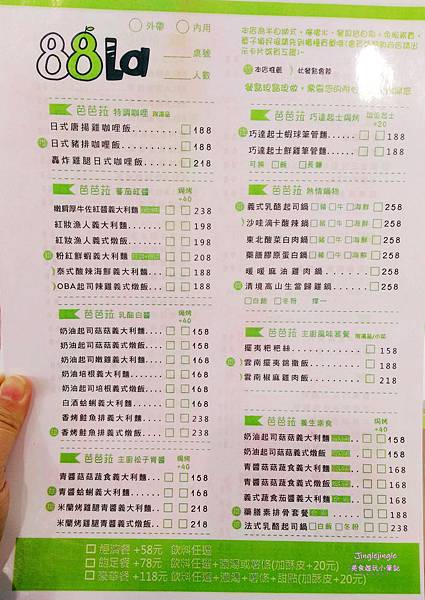 88La
○外帶 ○內用
桌號
人數
本店推薦
芭芭菈 特調咖哩 附湯品
日式唐揚雞咖哩飯 □188
日式豬排咖哩飯 □188
轟炸雞腿日式咖哩飯 □218
芭芭菈 蕃茄紅醬 焗烤+40
嫩肩厚牛佐紅醬義大利麵 □□238
紅妝漁人義大利麵 □□198
紅妝漁人義式燉飯 □□198
粉紅鮮蝦義大利麵 □□208
泰式酸辣海鮮義大利麵 □□188
OBA起司辣雞義式燉飯 □□188
芭芭菈 乳酪白醬 焗烤+40
奶油起司菇菇義大利麵 □□158
奶油起司菇菇義式燉飯 □□158
奶油起司嫩雞義大利麵 □□158
奶油培根義大利麵 □□158
奶油起司培根義式燉飯 □□158
白酒蛤蜊義大利麵 □□168
香烤鮭魚排義大利麵 □□238
香烤鮭魚排義式燉飯 □□238
芭芭菈 主廚松子青醬 焗烤+40
青醬菇菇蔬食義大利麵 □□158
青醬蛤蜊義大利麵 □□168
米蘭烤雞腿青醬義大利麵 □□208
米蘭烤雞腿青醬義式燉飯 □□208
芭芭菈 巧達起士焗烤 加起士+20
巧達起士蝦球筆管麵 □□188
巧達起士鮮雞筆管麵 □□188
可換□飯 □長麵
芭芭菈 熱情鍋物
義式乳酪起司鍋 □豬□牛□海鮮 □258
沙哇滴卡酸辣鍋 □豬□牛□海鮮 □258
東北酸菜白肉鍋 □豬□牛□海鮮 □258
藥膳膠原蛋白鍋 □豬□牛□海鮮 □258
暖暖麻油雞肉鍋 □258
清境高山生當歸雞鍋 □258
□白飯 □冬粉 擇一
芭芭菈 主廚風味套餐 附湯品/小菜
擺夷粑粑絲 □158
雲南擺夷錦撒飯 □188
雲南椒麻雞肉飯 □218
芭芭菈 養生素食 焗烤+40
奶油起司菇菇義大利麵 □□158
奶油起司菇菇義式燉飯 □□158
青醬菇菇蔬食義大利麵 □□168
青醬菇菇蔬食義式燉飯 □□168
義式蔬食茄醬義大利麵 □□168
藥膳素排骨套餐 □168
法式乳酪起司鍋 □白飯□冬粉 □238
□經濟餐 +58元 飲料任選
□飽足餐 +78元 飲料任選+濃湯或薯條(加酥皮+20元)
□豪華餐 +118元 飲料任選+濃湯+薯條+甜點(加酥皮+20元)
Jinglejingle
美食遊玩小筆記